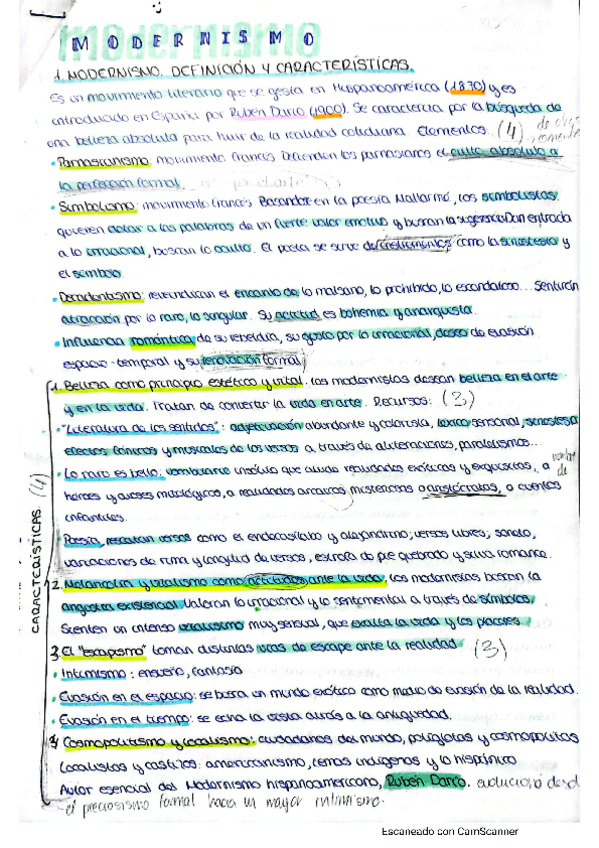 MODERNISMO
1. MODERNISMO. DEFINICIÓN Y CARACTERÍSTICAS.
Es un movimiento literario que se gesta en Hispanoamérica (1870) y es
introducido en España por Rubén Darío (1900). Se caracteriza por la búsqueda de
una belleza absoluta para huir de la realidad cotidiana. Elementos (4)
• Parnasianismo: movimiento francés. Defienden los parnasianos el culto absoluto a
la perfección formal.
• Simbolismo: movimiento francés. Basándose en la poesía Mallarmé, los simbolistas.
quieren dotar a las palabras de un fuerte valor emotivo y buscan la sugerencia. Dan entrada
a lo irracional, buscan lo oculto. El poeta se sirve de instrumentos como la sinestesia y
el símbolo
• Decadentismo: reivindican el encanto de lo malsano, lo prohibido, lo escandaloso... Sentirán
atracción por lo raro, lo singular. Su actitud es bohemia y anarquista.
• Influencia romántica de su rebeldía, su gusto por lo irracional, deseo de evasión
espacio-temporal y su renovación formal.
CARACTERÍSTICAS (4)
1. Belleza como principio estético y vital. Los modernistas desean belleza en el arte
y en la vida. Tratan de convertir la vida en arte. Recursos: (3)
• "Literatura de los sentidos": adjetivación abundante y colorista, léxico sensorial, sinestesia
efectos fónicos y musicales de los versos a través de aliteraciones, paralelismos...
• Lo raro es bello: vocabulario insólito que alude realidades exóticas y exquisitas, a nombre de
héroes y dioses mitológicos, a realidades arcaicas, misteriosas o aristócratas, o cuentos
infantiles.
Poesía, rescatan versos como el endecasílabo y alejandrino; versos libres; soneto,
variaciones de rima y longitud de versos, estrofa de pie quebrado y silva romance.
2. Melancolía y vitalismo como actitudes ante la vida. Los modernistas buscan la
angustia existencial. Valoran lo irracional y lo sentimental a través de símbolos.
Sienten un intenso vitalismo muy sensual, que exalta la vida y los placeres
3. El "escapismo" toman distintas vías de escape ante la realidad (3)
• Intimismo: ensueño, fantasía
• Evasión en el espacio: se busca un mundo exótico como medio de evasión de la realidad.
• Evasión en el tiempo: se echa la vista atrás a la antigüedad.
4. Cosmopolitismo y localismo: ciudadanos del mundo, políglotas y cosmopolitas
Localistas y castizos: americanismo, temas indígenas y lo hispánico
Autor esencial del Modernismo hispanoamericano, Rubén Darío. evolucionó desd
el preciosismo formal hacia un mayor intimismo.
Escaneado con CamScanner